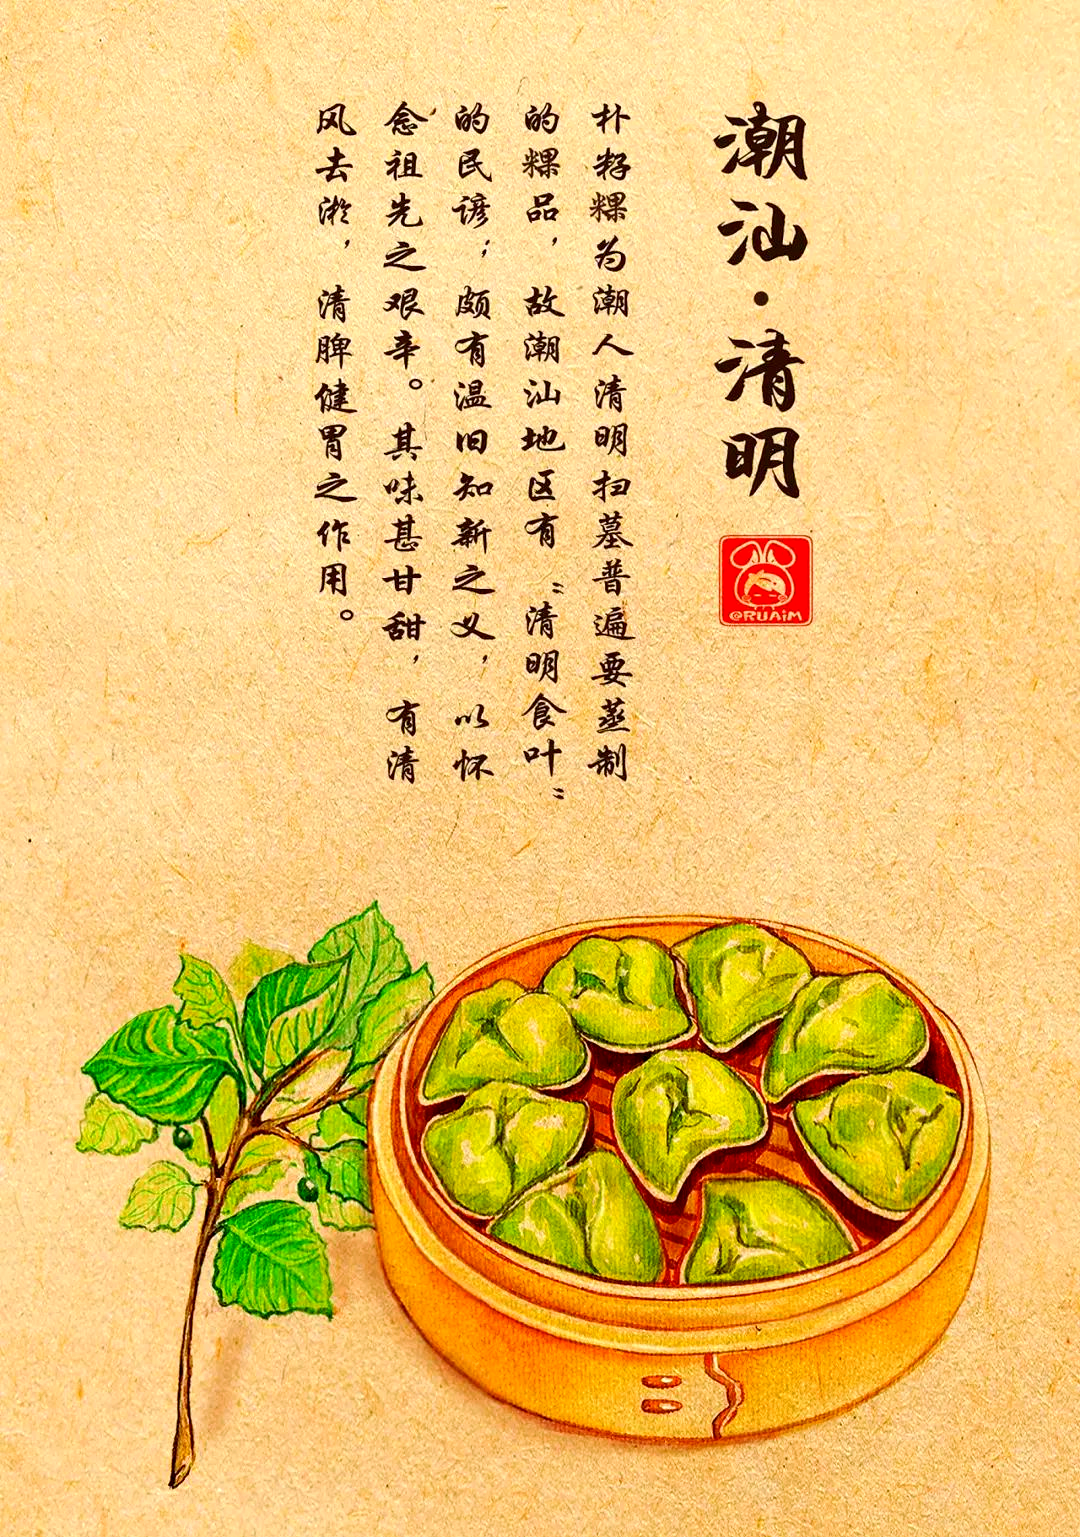 潮汕·清明
@RUAiM
朴籽粿为潮人清明扫墓普遍要蒸制
的粿品，故潮汕地区有“清明食叶”
的民谚；颇有温旧知新之义，以怀
念祖先之艰辛。其味甚甘甜，有清
风去淤，清脾健胃之作用。